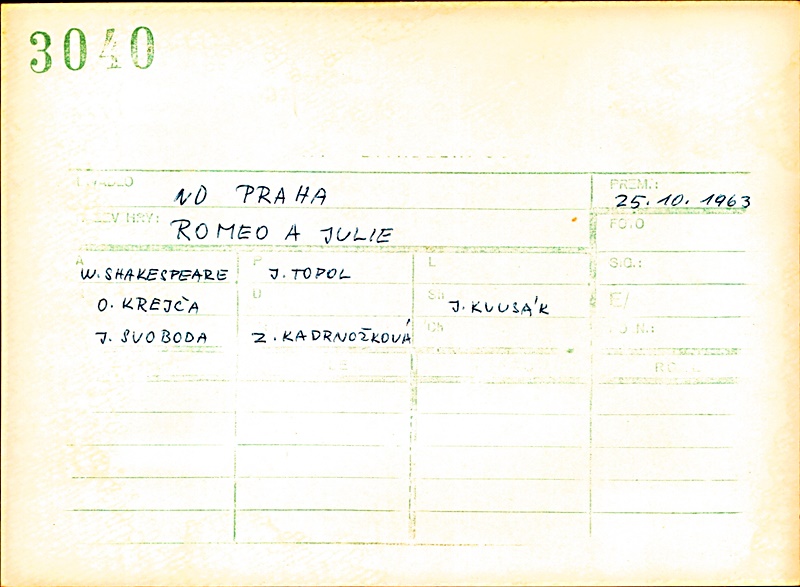 3040
DIVADLO ND PRAHA PREM.: 25.10.1963
NÁZEV HRY: ROMEO A JULIE FOTO
A W. SHAKESPEARE P J. TOPOL L SIG.:
O. KREJČA D SH J. KLUSÁK
J. SVOBODA Z. KADRNOŽKOVÁ CH